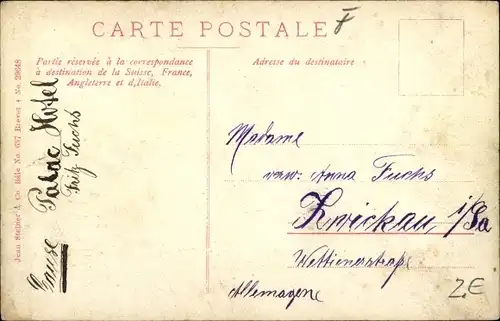 CARTE POSTALE
Partie réservée à la correspondance
à destination de la Suisse, France,
Angleterre et d'Italie.
Adresse du destinataire
Jean Steiner & Co. Bâle No. 687 Brevet + No. 29648
Palac Hotel
Fritz Fuchs
Madame
vew: Anna Fuchs
Zwickau i/Sa
Wettienerstraße
Allemagene
2€